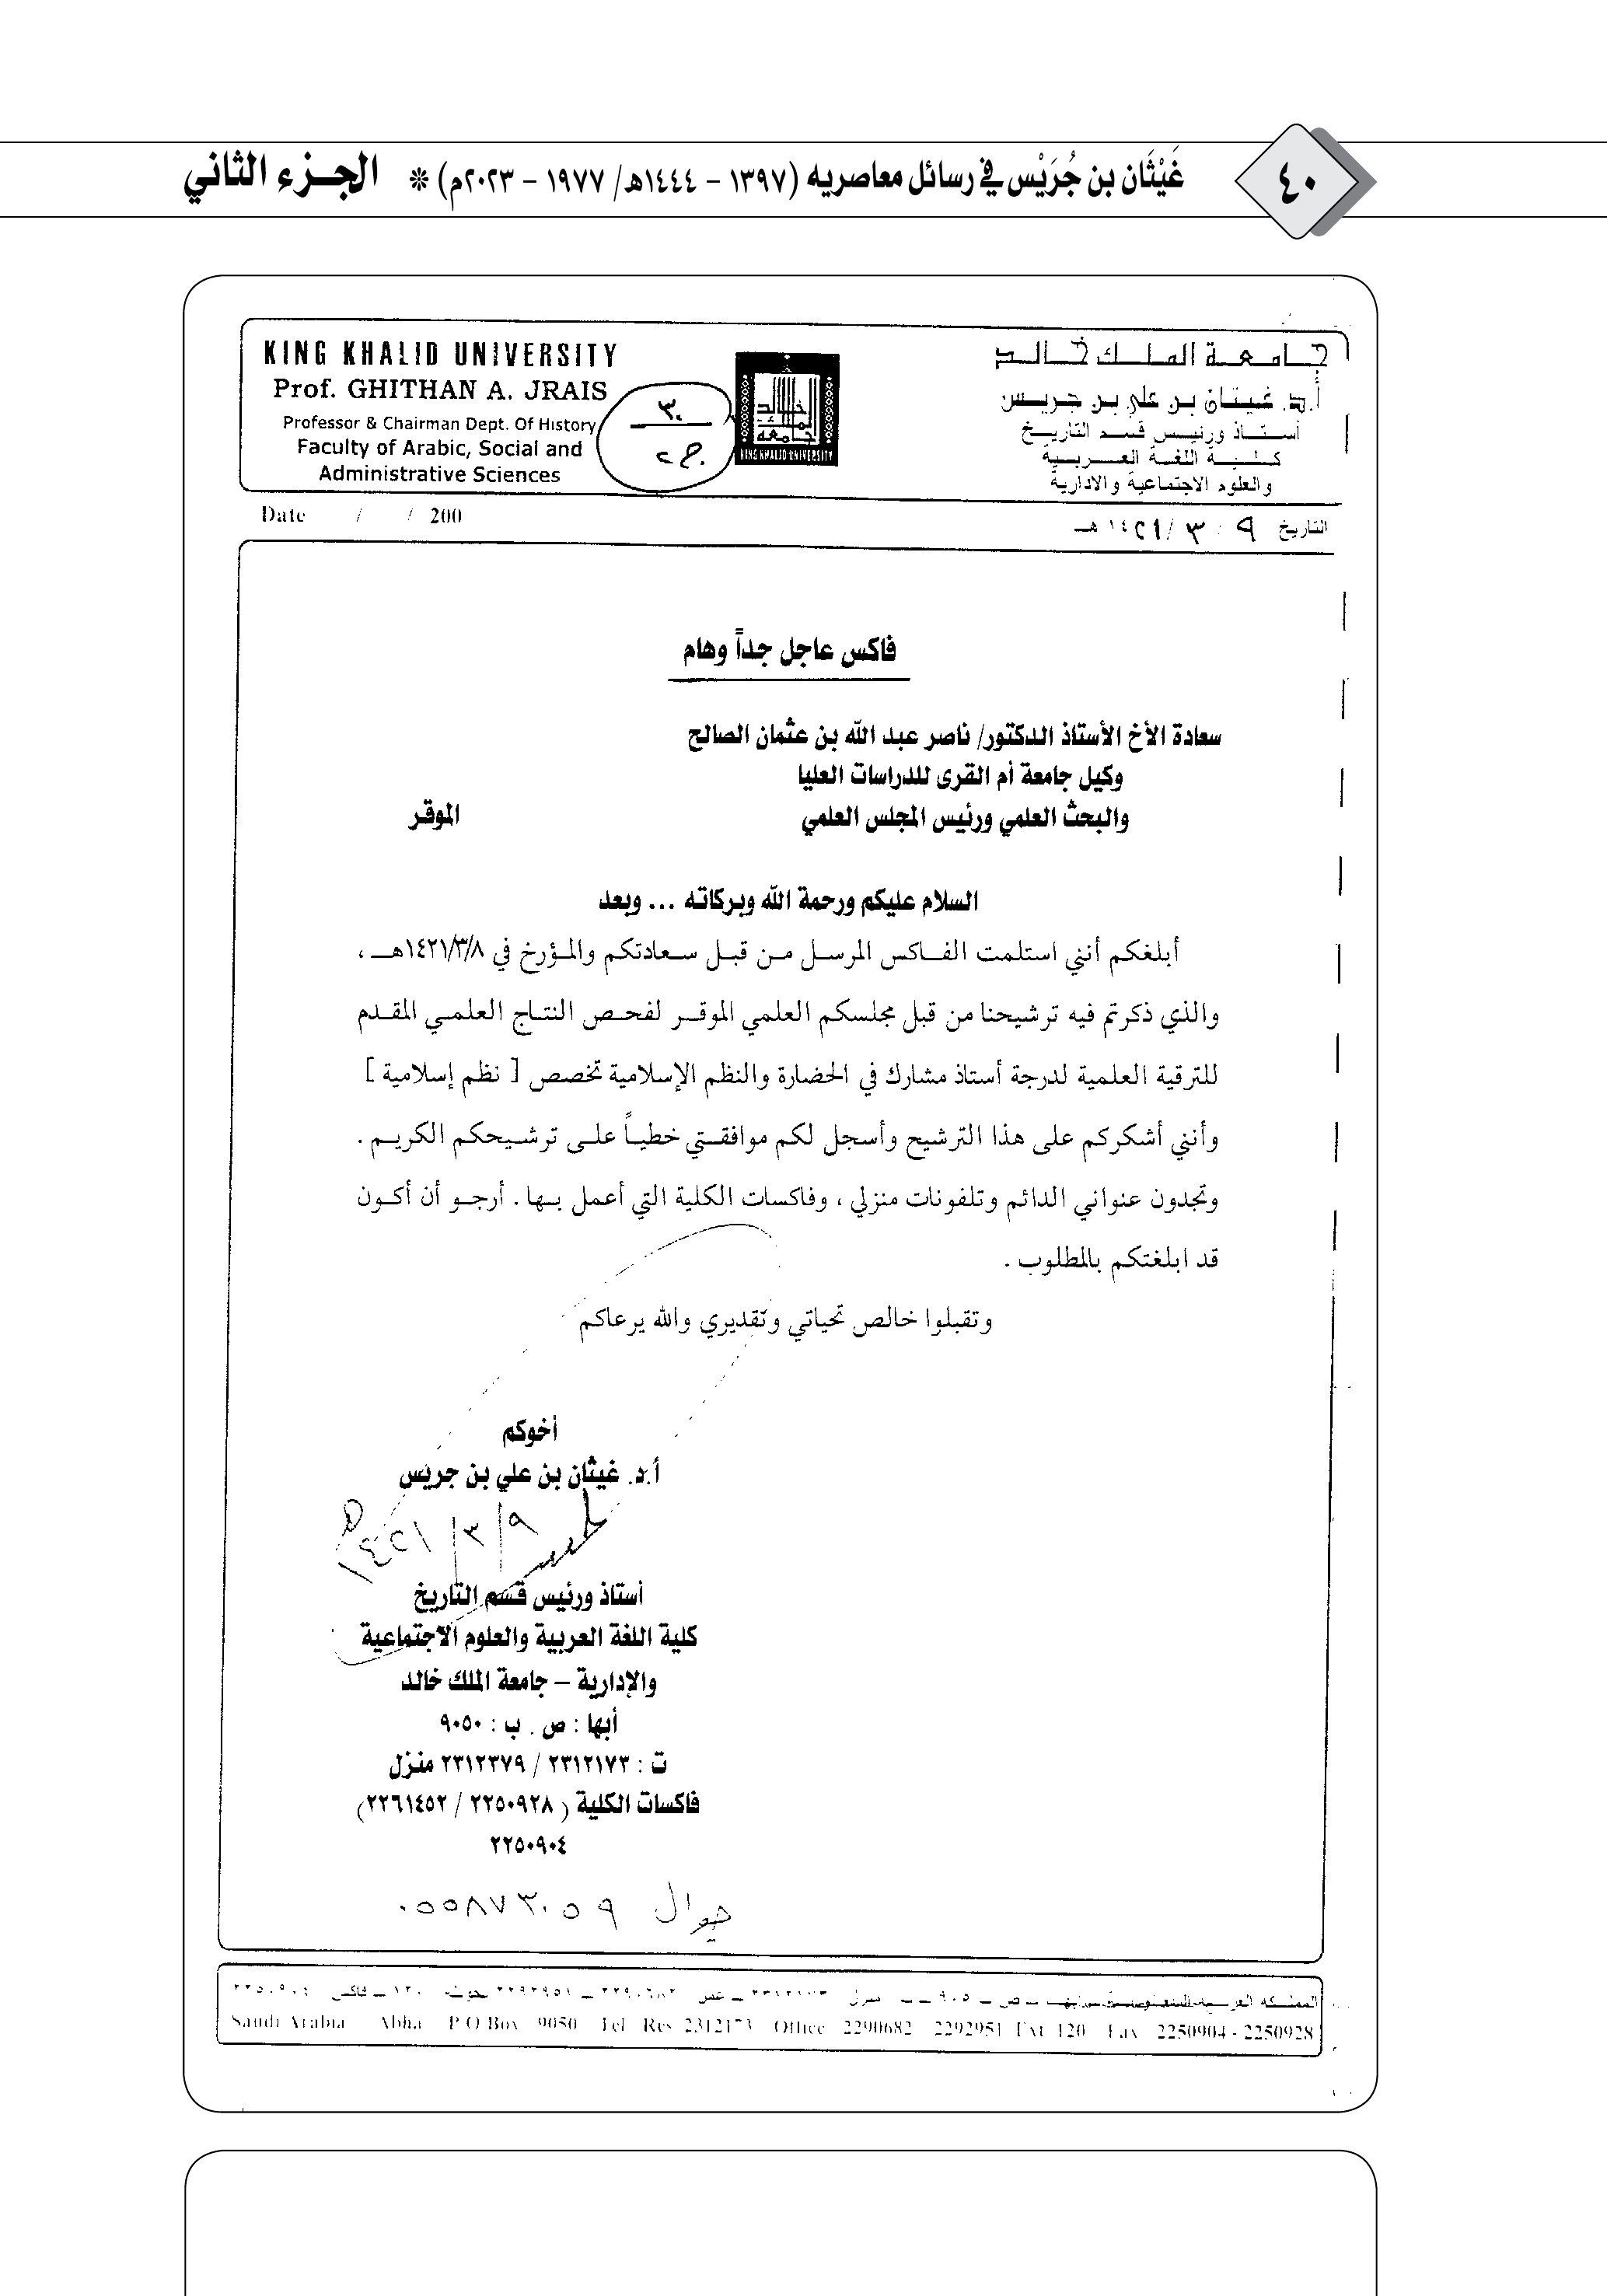 ٤٠
غَيْثَان بن جُرَيْس في رسائل معاصريه (١٣٩٧ - ١٤٤٤هـ/ ١٩٧٧ - ٢٠٢٣م) * الجـزء الثاني
جامعة الملك خالد
أ.د. غيثان بن علي بن جريس
أستاذ ورئيس قسم التاريخ
كلية اللغة العربية
والعلوم الاجتماعية والادارية
KING KHALID UNIVERSITY
Prof. GHITHAN A. JRAIS
Professor & Chairman Dept. Of History
Faculty of Arabic, Social and
Administrative Sciences
٣٠
KING KHALID UNIVERSITY
التاريخ ٩ / ٣ / ١٤٢١ هـ
Date / / 200
فاكس عاجل جداً وهام
سعادة الأخ الأستاذ الدكتور/ ناصر عبد الله بن عثمان الصالح
وكيل جامعة أم القرى للدراسات العليا
والبحث العلمي ورئيس المجلس العلمي الموقر
السلام عليكم ورحمة الله وبركاته ... وبعد
أبلغكم أنني استلمت الفاكس المرسل من قبل سعادتكم والمؤرخ في ١٤٢١/٣/٨هـ ،
والذي ذكرتم فيه ترشيحنا من قبل مجلسكم العلمي الموقر لفحص النتاج العلمي المقدم
للترقية العلمية لدرجة أستاذ مشارك في الحضارة والنظم الإسلامية تخصص [ نظم إسلامية ]
وأنني أشكركم على هذا الترشيح وأسجل لكم موافقتي خطياً على ترشيحكم الكريم .
وتجدون عنواني الدائم وتلفونات منزلي ، وفاكسات الكلية التي أعمل بها . أرجو أن أكون
قد ابلغتكم بالمطلوب .
وتقبلوا خالص تحياتي وتقديري والله يرعاكم
أخوكم
أ.د. غيثان بن علي بن جريس
٩/٣/١٤٢١هـ
أستاذ ورئيس قسم التاريخ
كلية اللغة العربية والعلوم الاجتماعية
والإدارية – جامعة الملك خالد
أبها : ص . ب : ٩٠٥٠
ت : ٢٣١٢١٧٣ / ٢٣١٢٣٧٩ منزل
فاكسات الكلية ( ٢٢٥٠٩٢٨ / ٢٢٦١٤٥٢)
٢٢٥٠٩٠٤
جوال ٠٥٥٨٧٣٠٥٩
المملكة العربية السعودية
Saudi Arabia Abha P.O.Box 9050 Tel Res 2312173 Office 2290682 2292951 Ext 120 Fax 2250904 - 2250928